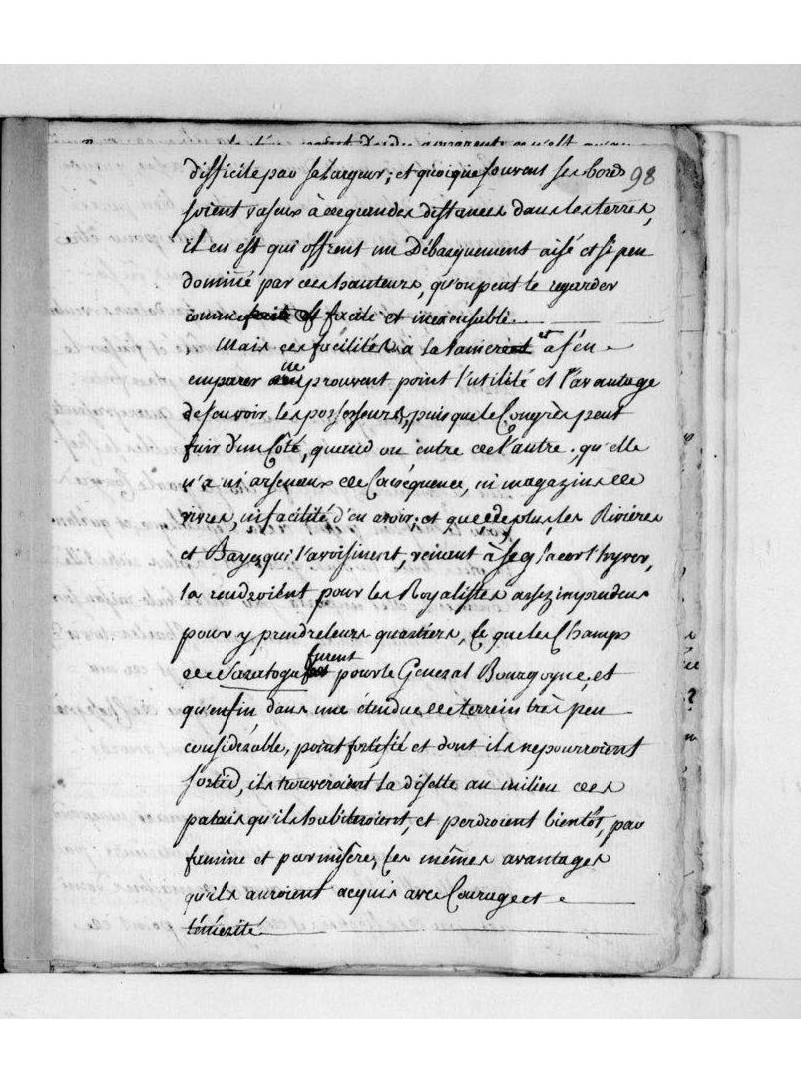 98
difficile par sa largeur; et quoique souvent ses bords
soient vaseux à de grandes distances dans les terres,
il en est qui offrent un Débarquement aisé et si peu
dominé par des hauteurs, qu'on peut le regarder
comme facile et inexcusable.
Mais ces facilités à et à s'en
emparer ne prouvent point l'utilité et l'avantage
de s'en voir les possesseurs, puisque le Congrès peut
fuir d'un Côté, quand on entre de l'autre; qu'elle
n'a ni arsenaux de Conséquence, ni magazins de
vivres, ni facilité d'en avoir; et que de plus, les Rivières
et Bayes qui l'avoisinent, venant à se glacer l'hyver,
la rendroient pour les Royalistes assez imprudens
pour y prendre leurs quartiers, ce que les Champs
de Saratoga furent pour le General Bourgoyne, et
qu'enfin dans une étendue de terrein très peu
considérable, point fortifié et dont ils ne pourroient
sortir, ils trouveroient la disette au milieu des
palais qu'ils habiteroient, et perdroient bientôt, par
famine et par misère, les mêmes avantages
qu'ils auroient acquis avec Courage et
témérité.